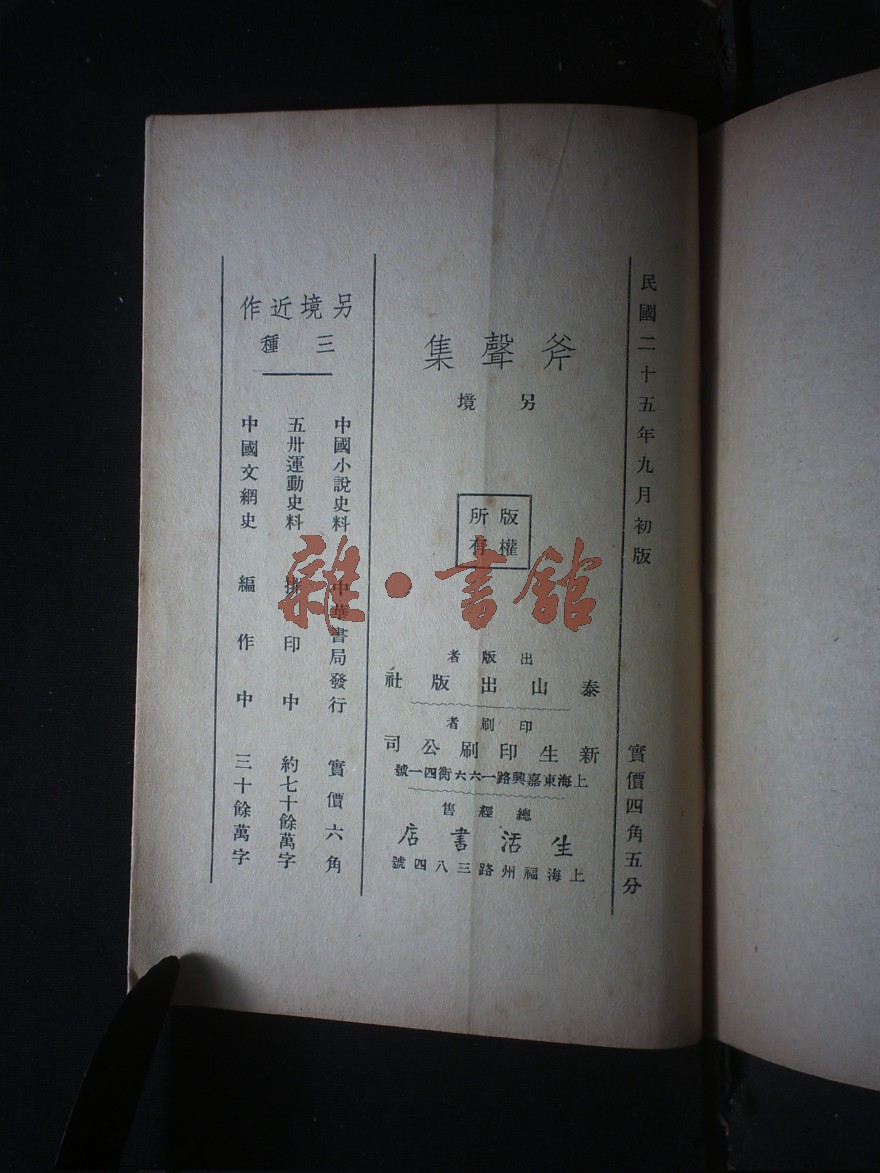 民國二十五年九月初版
實價四角五分
斧聲集
另境
版權
所有
出版者
泰山出版社
印刷者
新生印刷公司
上海東嘉興路一六六衖四一號
總經售
生活書店
上海福州路三八四號
另境近作
三種
中國小說史料 中華書局發行 實價六角
五卅運動史料 排印中 約七十餘萬字
中國文網史 編作中 三十餘萬字
雜·書館